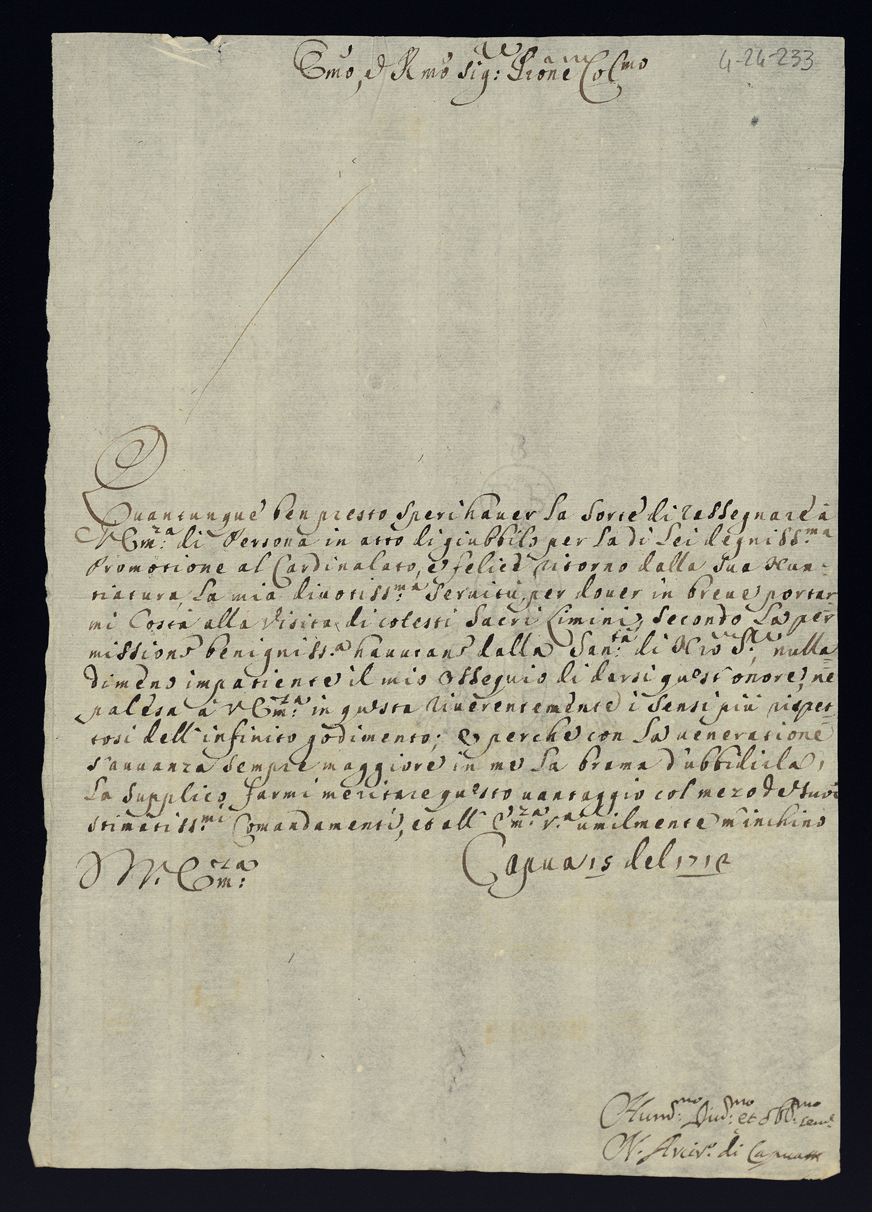 Emo, e Rmo Sig: Prone Colmo
4-24-233
Quantunque ben presto speri haver la sorte di rassegnare à
V. Em:za di Persona in atto di giubbilo per la di Lei degniss:ma
Promotione al Cardinalato, e felice ritorno dalla sua Nun-
tiatura, la mia divotiss:ma Servitù, per dover in breve portar
mi Costà alla Visita di cotesti Sacri Limini, secondo la per
missione benigniss:a havutane dalla San:tà di Nro S:re nulla=
dimeno impatiente il mio Ossequio di darsi quest'onore, ne
palesa à V. Em:za in questa riverentemente i sensi più rispet=
tosi dell'infinito godimento; e perche con la veneratione
s'avvanza sempre maggiore in me la brama d'ubbidirla,
La supplico farmi meritare questo vantaggio col mezo de suoi
stimatiss:mi Comandamenti, et all' Em:za V:a umilmente m'inchino
V. Em:za
Capua 15 del 1712
Hum:mo Div:mo et Obb:mo serv:
N. Arciv:o di Capua